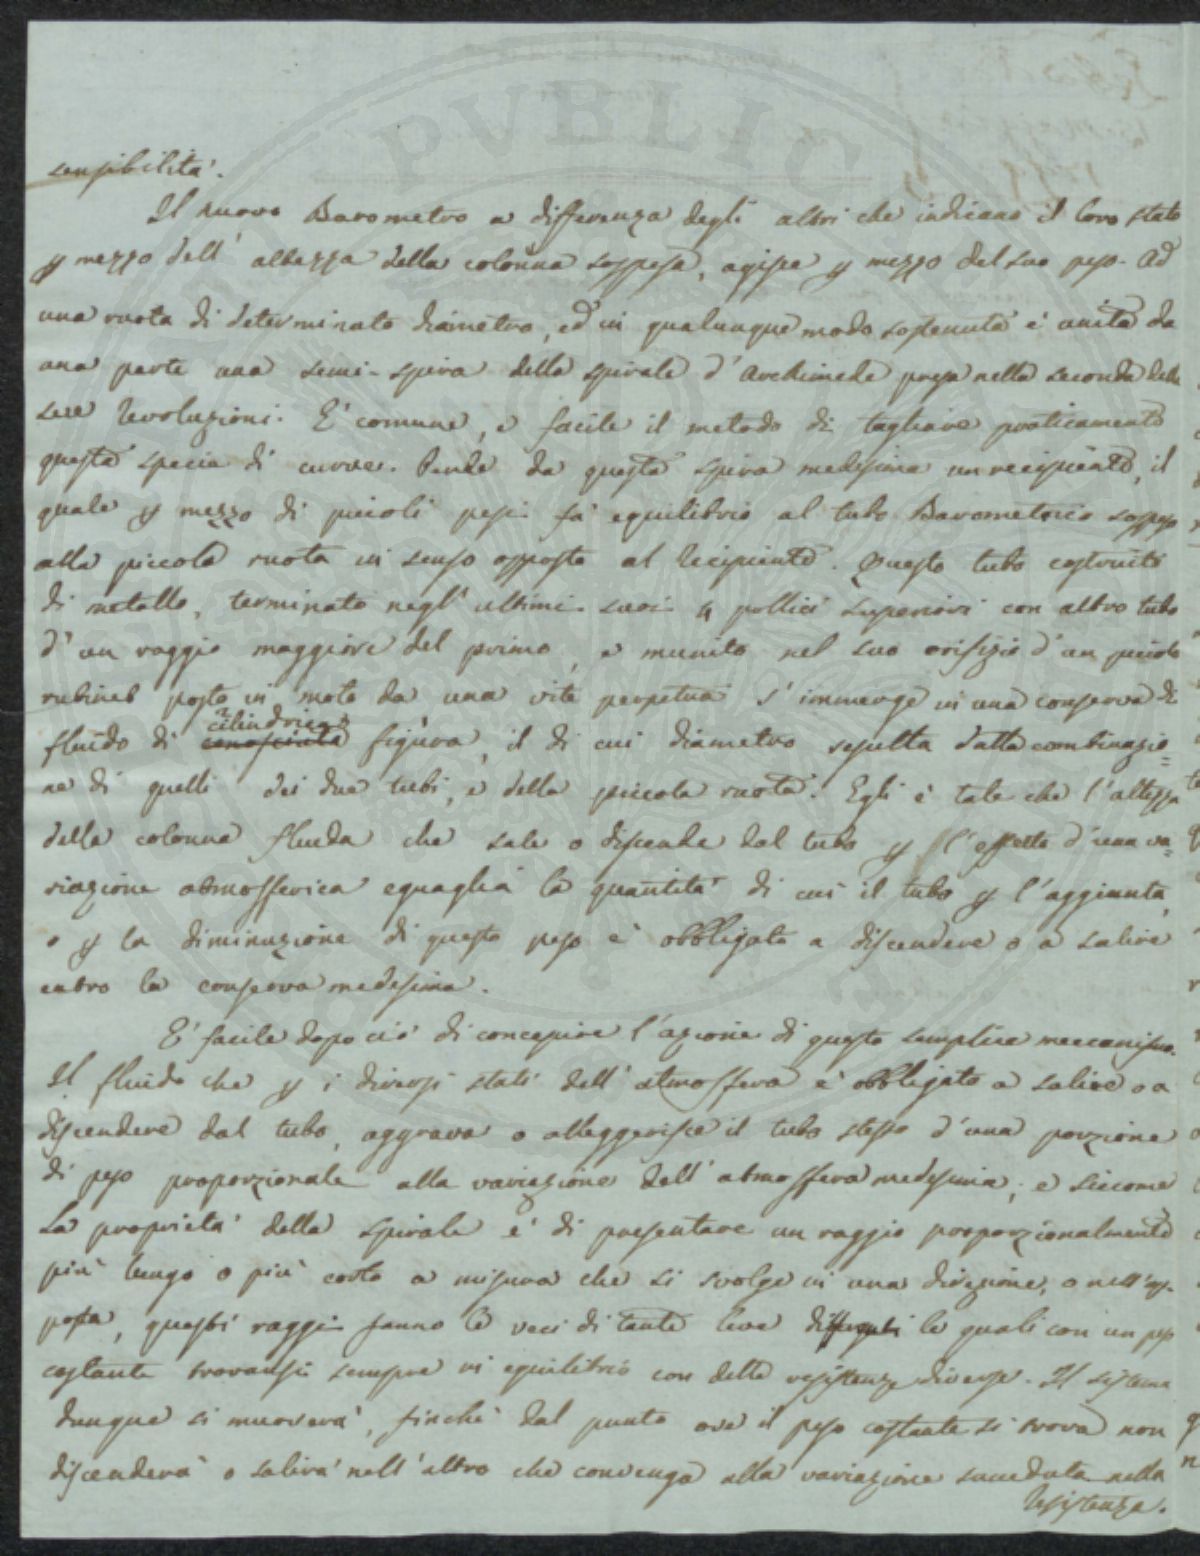 sensibilità.
Il nuovo Barometro a differenza degli altri che indicano il loro stato
p mezzo dell' altezza della colonna sospesa, agisce p mezzo del suo peso. Ad
una ruota di determinato diametro, ed in qualunque modo sostenuta è unita da
una parte una semi-spira della spirale d'Archimede presa nella seconda delle
sue revoluzioni. E' comune, e facile il metodo di tagliare praticamente
questa specie di curve. Pende da questa spira medesima un recipiente, il
quale p mezzo di piccoli pesi fa equilibrio al tubo Barometrico sospeso
alla piccola ruota in senso opposto al recipiente. Questo tubo costruito
di metallo, terminato negl' ultimi suoi 4 pollici superiori con altro tubo
d' un raggio maggiore del primo, e munito nel suo orifizio d'un piccolo
rubinet posto in moto da una vite perpetua s' immerge in una conserva di
cilindrica
fluido di figura, il di cui diametro resulta dalla combinazio=
ne di quelli dei due tubi, e della piccola ruota. Egli è tale che l'altezza
della colonna fluida che sale o discende dal tubo p l'effetto d'una va=
riazione atmosferica eguaglia la quantità di cui il tubo p l'aggiunta,
o p la diminuzione di questo peso è obbligato a discendere o a salire
entro la conserva medesima.
E' facile dopo ciò di concepire l'azione di questo semplice meccanismo.
Il fluido che p i diversi stati dell' atmosfera è obbligato a salire o a
discendere dal tubo, aggrava o alleggerisce il tubo stesso d'una porzione
di peso proporzionale alla variazione dell' atmosfera medesima; e siccome
la proprietà della spirale è di presentare un raggio proporzionalmente
più lungo o più corto a misura che si svolge in una direzione, o nell'op-
posta, questi raggi fanno le veci di tante leve differenti le quali con un peso
costante trovansi sempre in equilibrio con delle resistenze diverse. Il sistema
dunque si muoverà, finchè dal punto ove il peso costante si trova non
discenderà o salirà nell' altro che convenga alla variazione succeduta nella
resistenza.